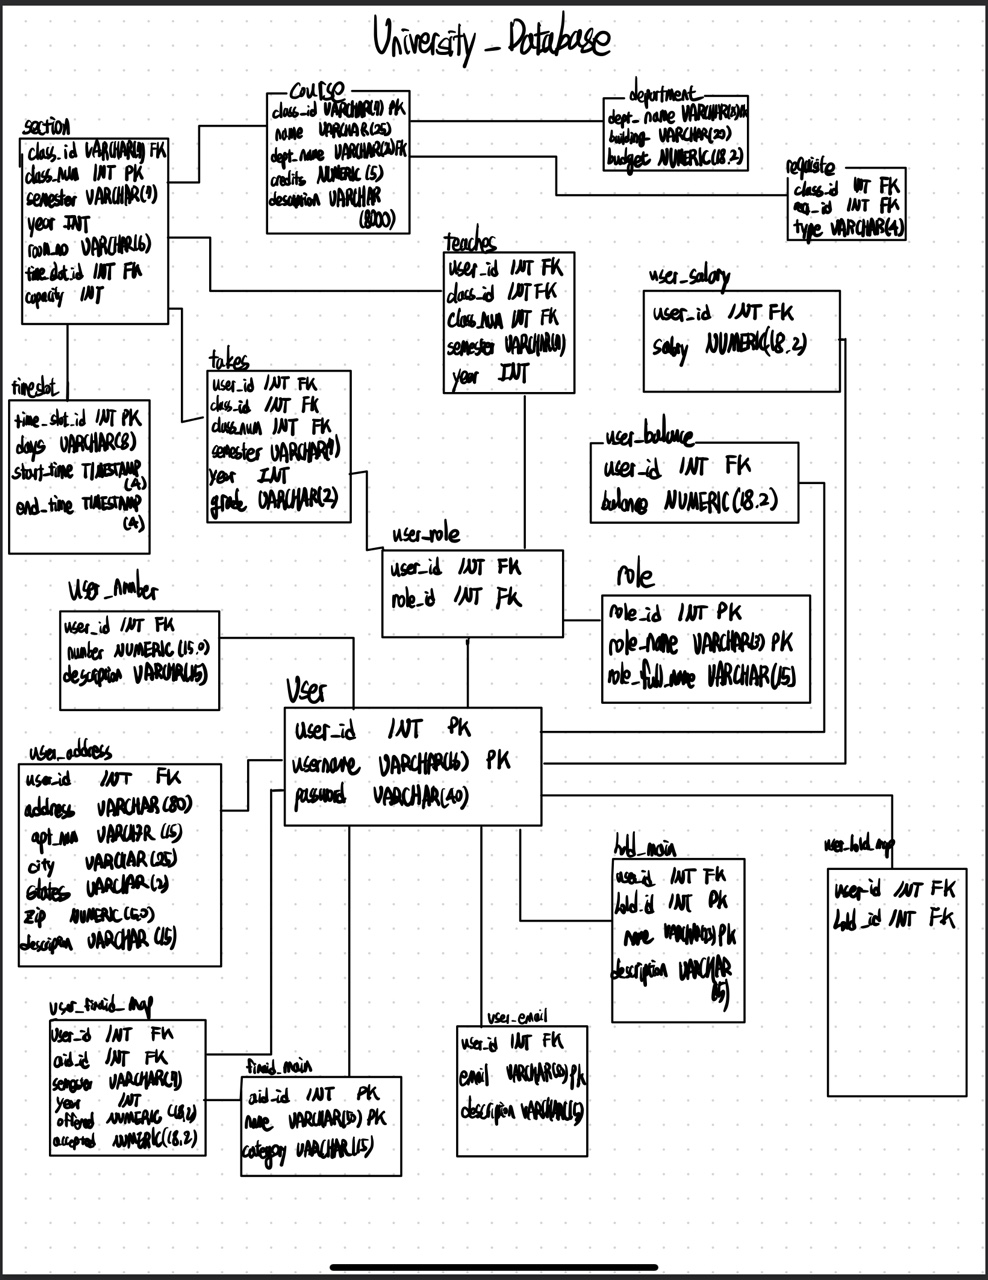 University_Database
section
class_id VARCHAR(9) FK
class_num INT PK
semester VARCHAR(9)
year INT
room_no VARCHAR(6)
time_slot_id INT FK
capacity INT
course
class_id VARCHAR(9) PK
name VARCHAR(25)
dept_name VARCHAR(2)FK
credits NUMERIC (5)
VARCHAR
(8000)
department
dept_name
building VARCHAR(20)
budget NUMERIC (18.2)
class_id INT FK
req_id INT FK
type VARCHAR(4)
teaches
user_id INT FK
class_id INT FK
class_num INT FK
semester
year INT
user_salary
user_id INT FK
salary NUMERIC(18.2)
timeslot
time_slot_id INT PK
days VARCHAR(8)
start_time TIMESTAMP
(A)
end_time TIMESTAMP
(A)
takes
user_id INT FK
class_id INT FK
class_num INT FK
semester VARCHAR(9)
year INT
grade VARCHAR(2)
user_balance
user_id INT FK
balance NUMERIC(18.2)
user_role
user_id INT FK
role_id INT FK
role
role_id INT PK
role_name VARCHAR(3) PK
role_full_name VARCHAR(15)
User_number
user_id INT FK
number NUMERIC (15.0)
description VARCHAR(15)
User
user_id INT PK
username VARCHAR(16) PK
password VARCHAR(40)
user_address
user_id INT FK
address VARCHAR (80)
apt_num VARCHAR (15)
city VARCHAR (25)
states VARCHAR (2)
zip NUMERIC (5.0)
VARCHAR (15)
hold_main
user_id INT FK
hold_id INT PK
name PK
description VARCHAR
(15)
user_hold_map
user_id INT FK
hold_id INT FK
user_finaid_map
user_id INT FK
aid_id INT FK
semester VARCHAR(9)
year INT
offered NUMERIC (18.2)
accepted NUMERIC(18.2)
finaid_main
aid_id INT PK
name PK
category VARCHAR (15)
user_email
user_id INT FK
email PK
description VARCHAR(15)